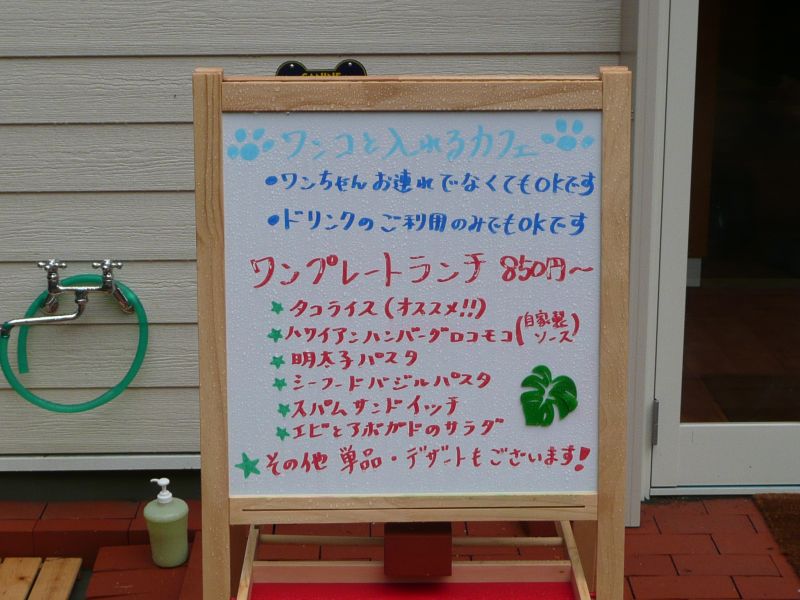 CANINE
ワンコと入れるカフェ
●ワンちゃんお連れでなくてもOKです
●ドリンクのご利用のみでもOKです
ワンプレートランチ 850円〜
★タコライス(オススメ!!)
★ハワイアンハンバーグロコモコ(自家製ソース)
★明太子パスタ
★シーフードバジルパスタ
★スパムサンドイッチ
★エビとアボガドのサラダ
★その他 単品・デザートもございます!